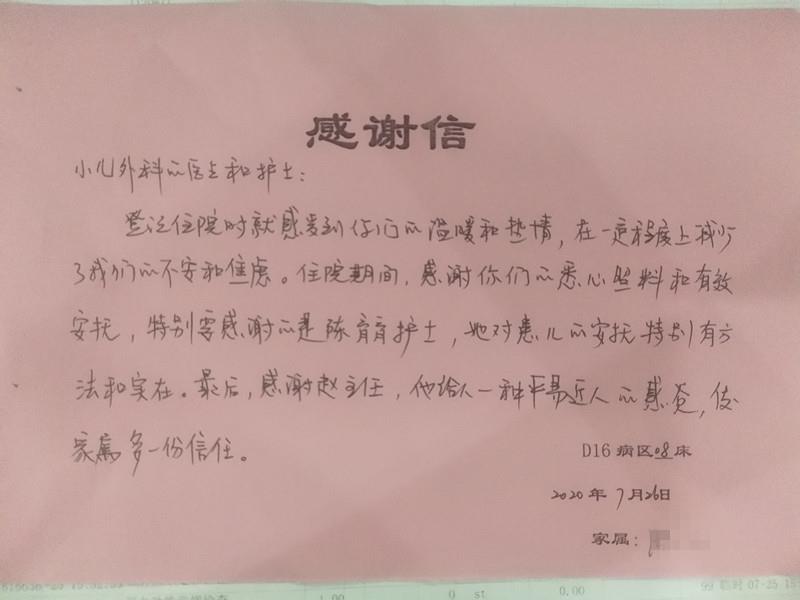 感谢信
小儿外科的医生和护士：
登记住院时就感受到你们的温暖和热情，在一定程度上减少
了我们的不安和焦虑。住院期间，感谢你们的悉心照料和有效
安抚，特别要感谢的是陈育育护士，她对患儿的安抚特别有方
法和实在。最后，感谢赵主任，他给人一种平易近人的感觉，使
家属多一份信任。
D16病区08床
2020年7月26日
家属：
1.00 0 st 0.00 99 临时 07-25 15